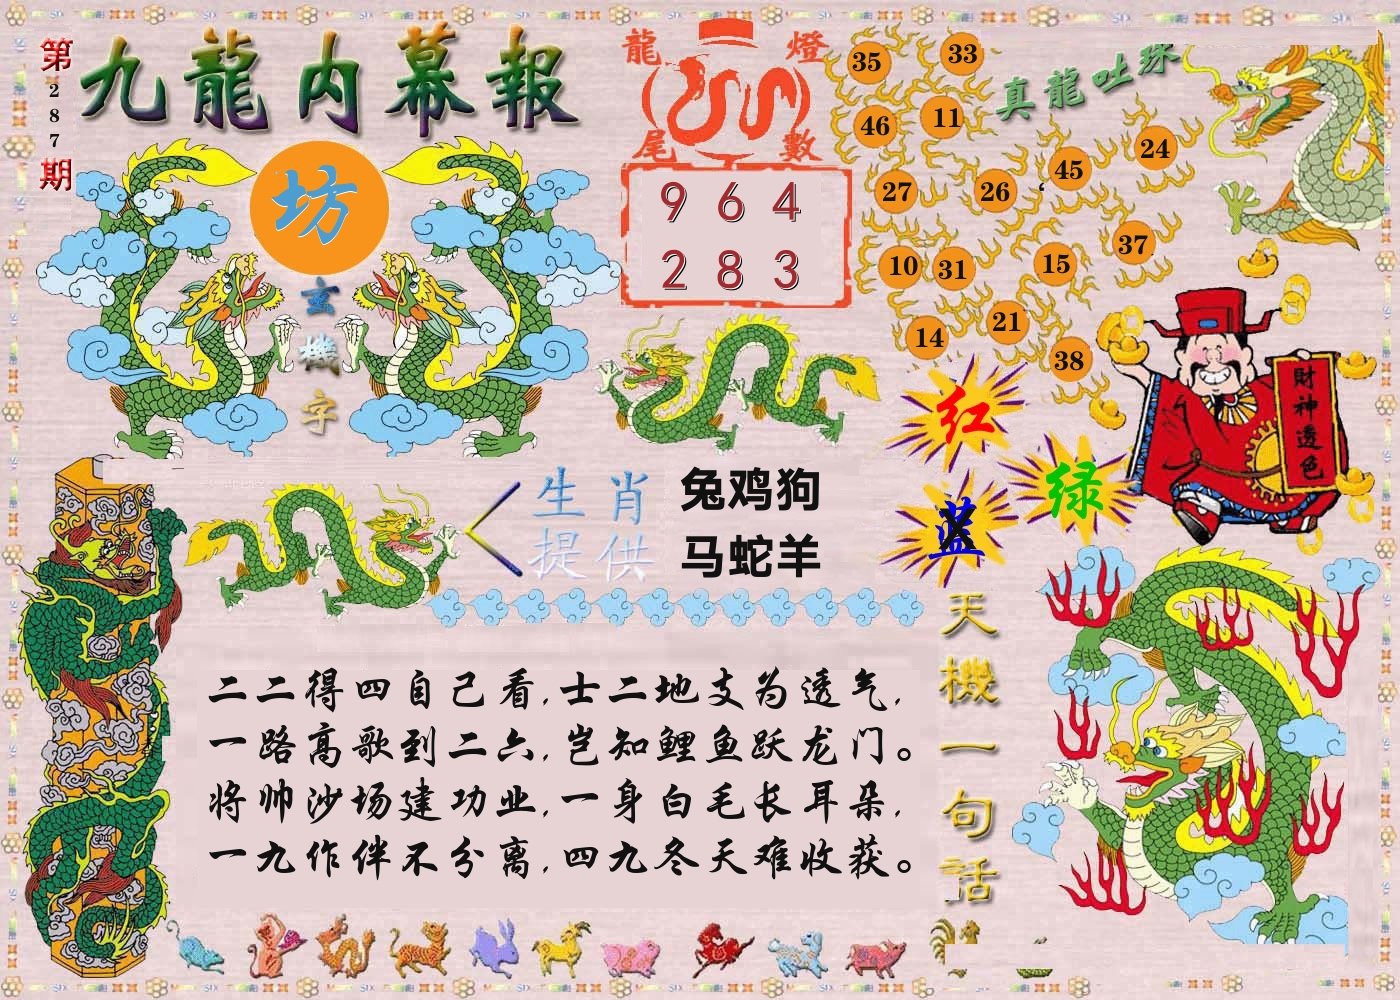 第287期
九龍内幕報
坊
玄機字
龍燈
尾數
9 6 4
2 8 3
真龍吐珠
35
33
46
11
24
45
27
26
37
10
31
15
21
14
38
財神透色
红
绿
蓝
生肖
提供
兔鸡狗
马蛇羊
天機一句話
二二得四自己看,士二地支为透气,
一路高歌到二六,岂知鲤鱼跃龙门。
将帅沙场建功业,一身白毛长耳朵,
一九作伴不分离,四九冬天难收获。